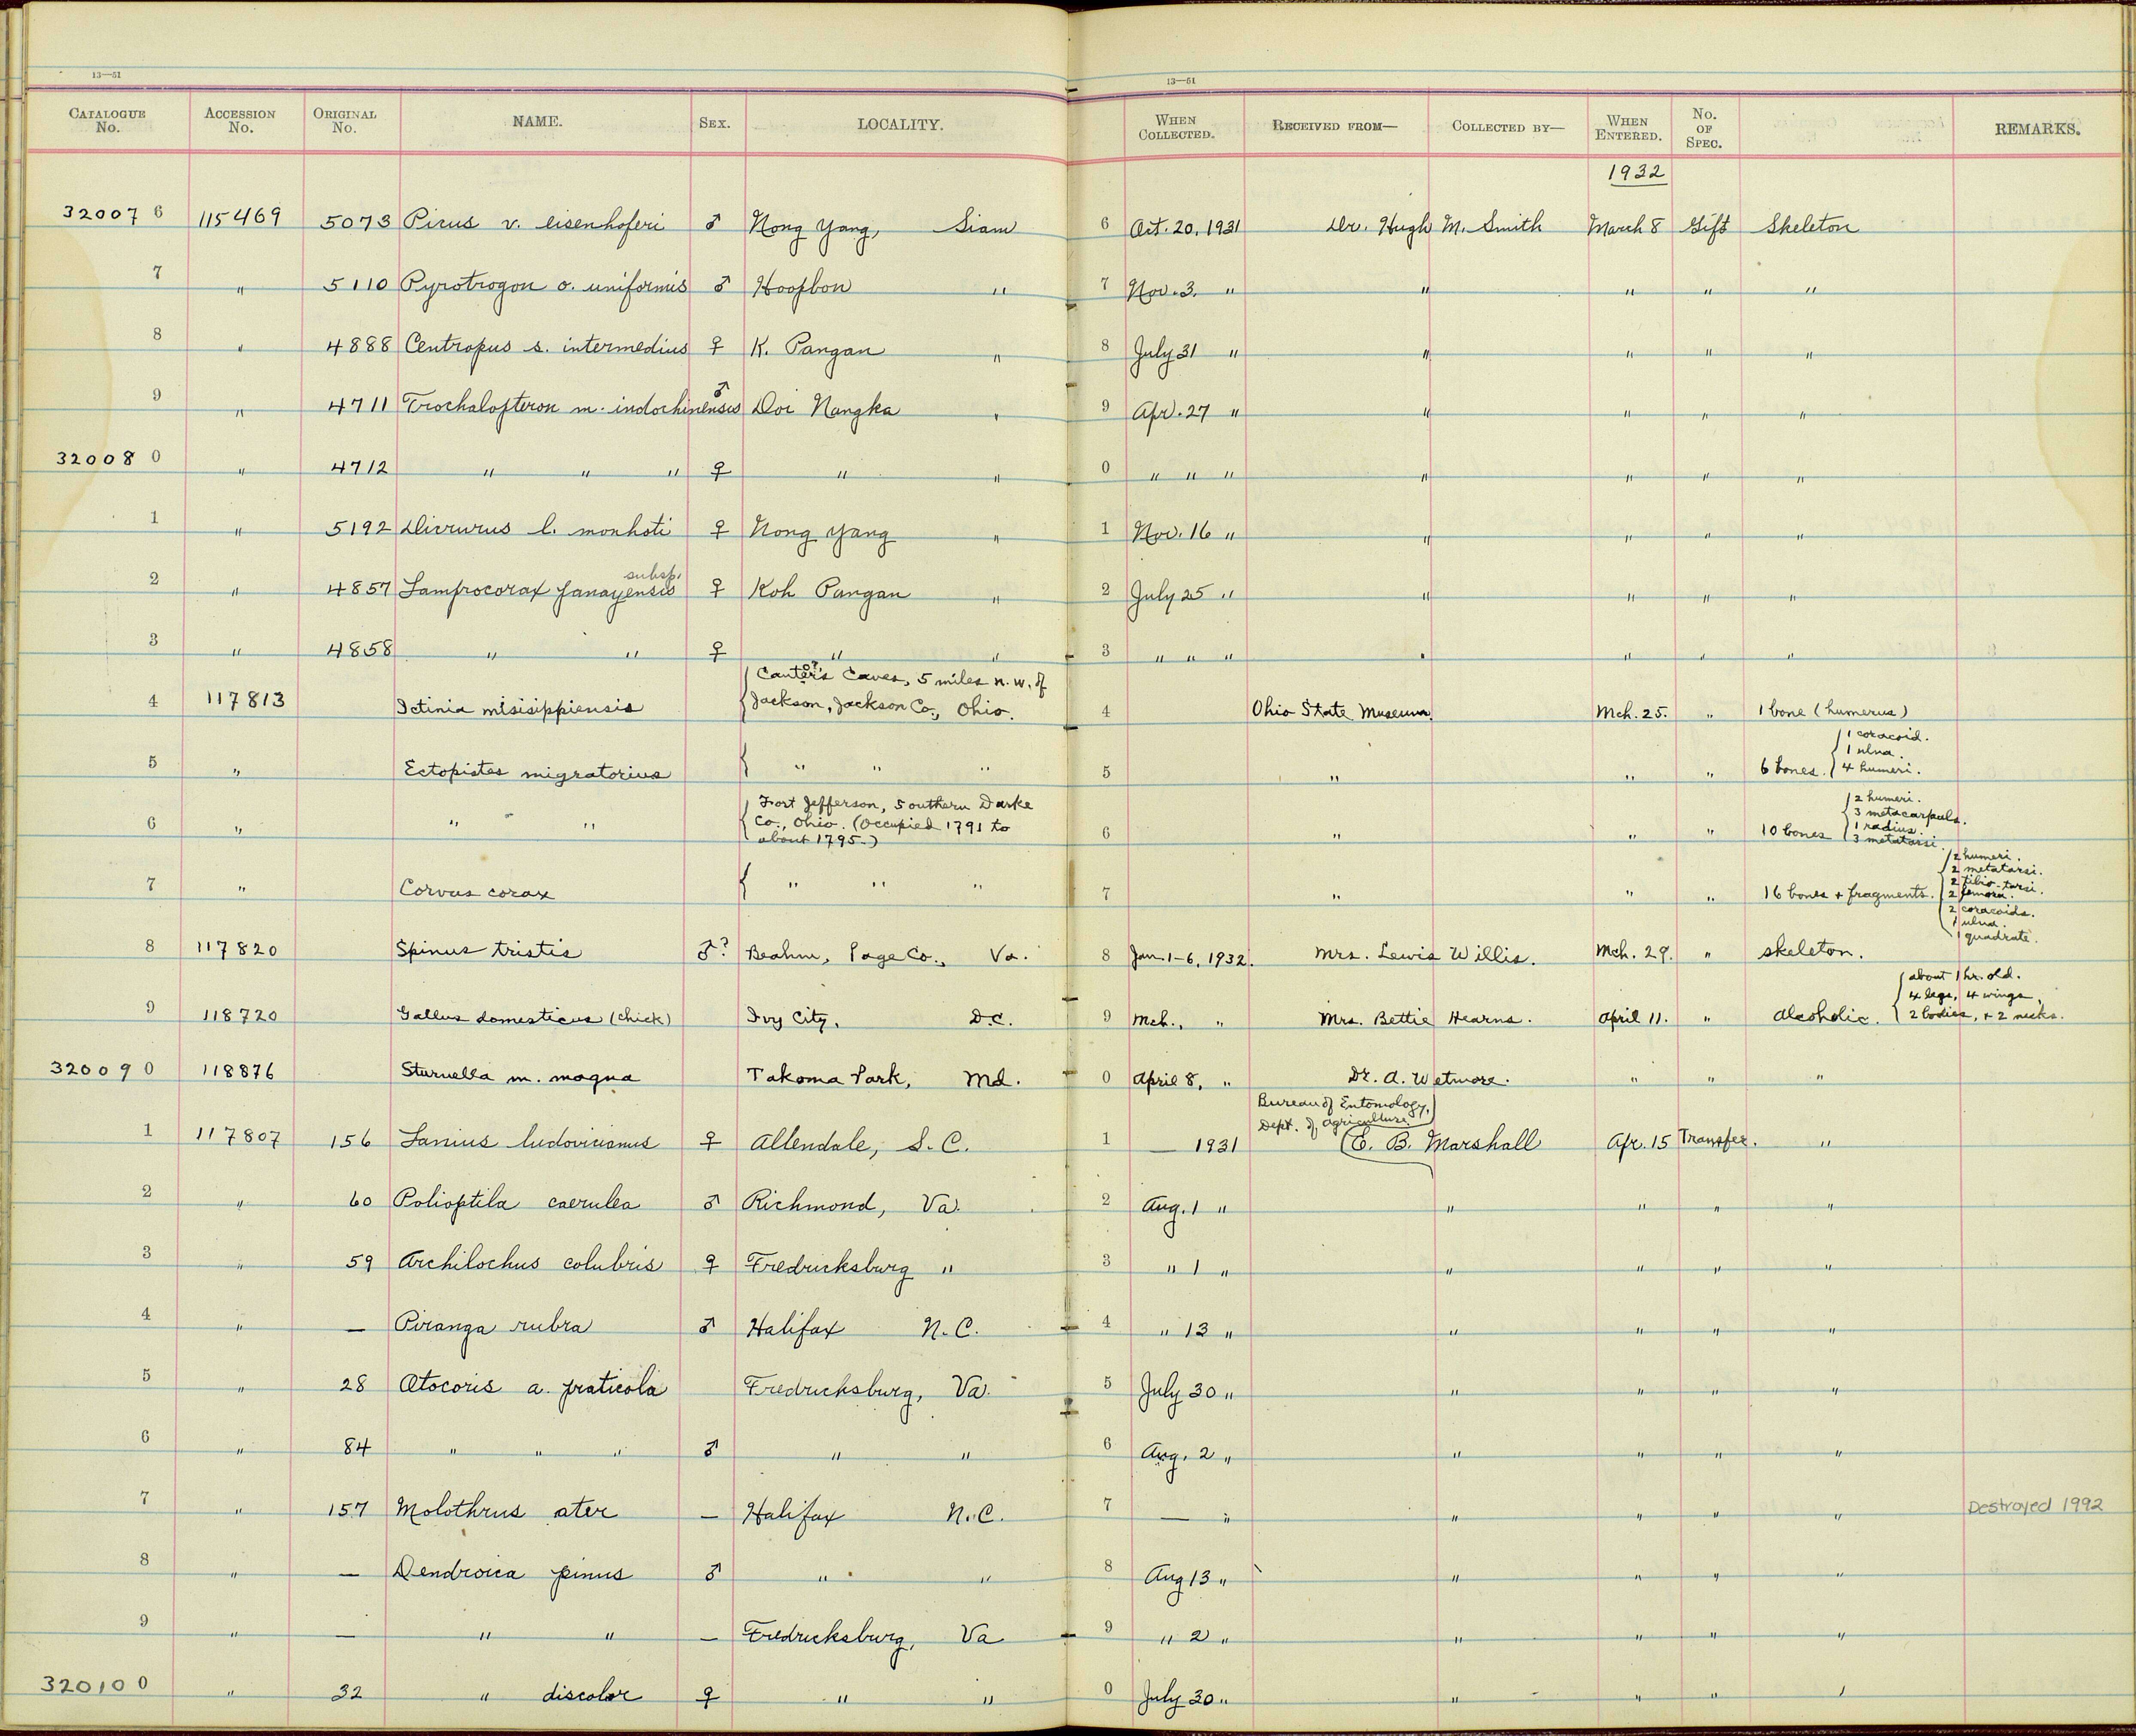 13—51
13—51
CATALOGUE No. ACCESSION No. ORIGINAL No. NAME. SEX. LOCALITY. WHEN COLLECTED. RECEIVED FROM— COLLECTED BY— WHEN ENTERED. No. OF SPEC. REMARKS.
1932
320076 115469 5073 Picus v. eisenhoferi ♂ Nong Yang, Siam 6 Oct. 20, 1931 Dr. Hugh M. Smith March 8 Gift Skeleton
7 " 5110 Pyrotrogon o. uniformis ♂ Hoopbon " 7 Nov. 3. " " " " "
8 " 4888 Centropus s. intermedius ♀ K. Pangan " 8 July 31 " " " " "
9 " 4711 Trochalopteron m. indochinensis ♂ Doi Nangka " 9 Apr. 27 " " " " "
320080 " 4712 " " " ♀ " " 0 " " " " " " "
1 " 5192 Dicrurus l. mouhoti ♀ Nong Yang " 1 Nov. 16 " " " " "
subsp.
2 " 4857 Lamprocorax panayensis ♀ Koh Pangan " 2 July 25 " " " " "
3 " 4858 " " ♀ " " 3 " " " " " " "
Canter's ? Caves, 5 miles n.w. of
4 117813 Ictinia misisippiensis Jackson, Jackson Co., Ohio. 4 Ohio State Museum. Mch. 25. " 1 bone (humerus)
5 " Ectopistes migratorius " " " 5 " " " 6 bones. { 1 coracoid.
1 ulna.
4 humeri.
6 " " " Fort Jefferson, Southern Darke
Co., Ohio. (Occupied 1791 to
about 1795.) 6 " " " 10 bones { 2 humeri.
3 metacarpals.
1 radius.
3 metatarsi.
7 " Corvus corax " " " 7 " " " 16 bones + fragments. { 2 humeri.
2 metatarsi.
2 tibio-tarsi.
2 femora.
2 coracoids.
1 ulna.
1 quadrate.
8 117820 Spinus tristis ♂? Beahm, Page Co., Va. 8 Jan. 1-6, 1932. Mrs. Lewis Willis. Mch. 29. " skeleton.
9 118720 Gallus domesticus (chick) Ivy City, D.C. 9 Mch., " Mrs. Bettie Hearns. April 11. " alcoholic. { about 1 hr. old.
4 legs, 4 wings,
2 bodies, + 2 necks.
320090 118876 Sturnella m. magna Takoma Park, Md. 0 April 8, " Dr. A. Wetmore. " " "
Bureau of Entomology,
Dept. of Agriculture
1 117807 156 Lanius ludovicianus ♀ Allendale, S.C. 1 — 1931 (E. B. Marshall Apr. 15 Transfer. "
2 " 60 Polioptila caerulea ♂ Richmond, Va. 2 Aug. 1 " " " " "
3 " 59 Archilochus colubris ♀ Fredricksburg " 3 " 1 " " " " "
4 " — Piranga rubra ♂ Halifax N.C. 4 " 13 " " " " "
5 " 28 Otocoris a. praticola Fredricksburg, Va. 5 July 30 " " " " "
6 " 84 " " " ♂ " " 6 Aug. 2 " " " " "
7 " 157 Molothrus ater — Halifax N.C. 7 — " " " " " Destroyed 1992
8 " — Dendroica pinus ♂ " " 8 Aug 13 " " " " "
9 " — " " — Fredricksburg, Va 9 " 2 " " " " "
320100 " 32 " discolor ♀ " " 0 July 30 " " " " "